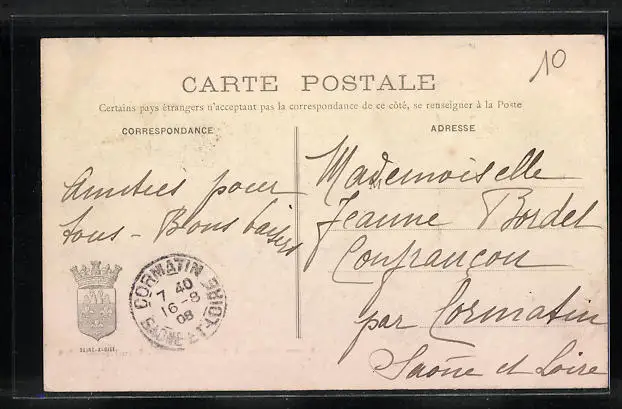 10
CARTE POSTALE
Certains pays étrangers n'acceptant pas la correspondance de ce côté, se renseigner à la Poste
CORRESPONDANCE
ADRESSE
Amitiés pour
tous - Bons baisers
Mademoiselle
Jeanne Bordet
Confrançon
par Cormatin
Saône et Loire
CORMATIN
7 40
16-8
08
SAÔNE-ET-LOIRE
SEINE-&-OISE.